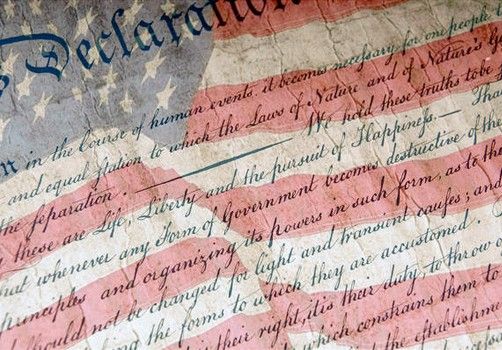 Declaration
n in the Course of human events, it becomes necessary for one people
and equal station to which the Laws of Nature and of Nature's G
the separation. — We hold these truths to be s
these are Life, Liberty and the pursuit of Happineſs. — Tha
hat whenever any Form of Government becomes destructive of the
principles and organizing its powers in such form, as to th
should not be changed for light and transient causes; and
ing the forms to which they are accustomed.
their right, it is their duty, to throw o
which constrains them to
the establishment